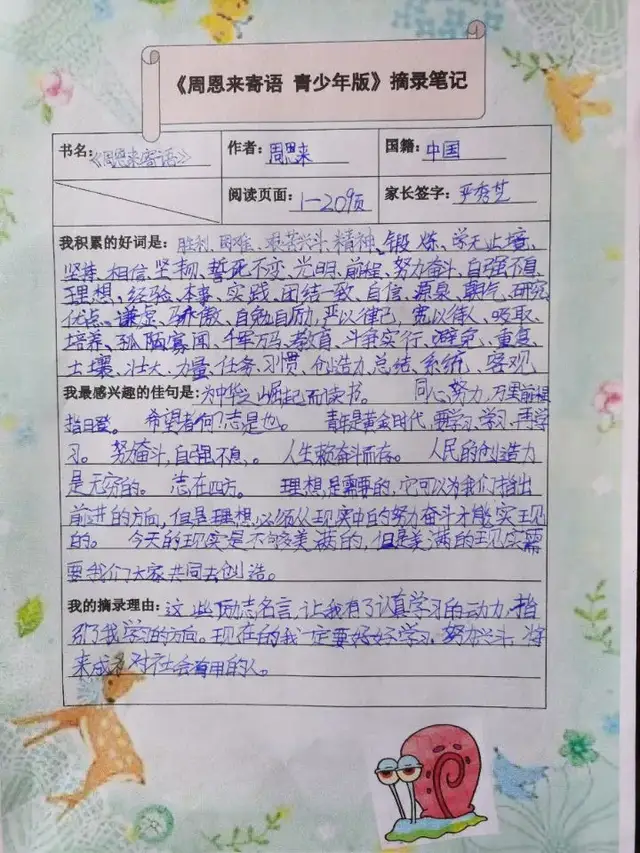 《周恩来寄语 青少年版》摘录笔记
书名：《周恩来寄语》 作者：周恩来 国籍：中国
阅读页面：1-209页 家长签字：严秀芝
我积累的好词是：胜利、困难、艰苦兴斗、精神、锻炼、学无止境、
坚持、相信、坚韧、誓死不变、光明、前程、努力奋斗、自强不息、
理想、经验、本事、实践、团结一致、自信、源泉、朝气、研究
优点、谦虚、骄傲、自勉自励、严以律己、宽以待人、吸取、
培养、孤陋寡闻、千军万马、教育、斗争实行、避免、重复、
土壤、壮大、力量、任务、习惯、创造力总结、系统、客观、
我最感兴趣的佳句是：为中华之崛起而读书。 同心努力，万里前程
指日登。 希望者何？志是也。 青年是黄金时代，要学习、学习、再学
习。 努奋斗，自强不息。 人生赖奋斗而存。 人民的创造力
是无穷的。 志在四方。 理想是需要的，它可以为我们指出
前进的方向，但是理想必须从现实中的努力奋斗才能实现
的。 今天的现实是不够美满的，但是美满的现实需
要我们大家共同去创造。
我的摘录理由：这些励志名言，让我有了认真学习的动力，指
引了我学习的方向。现在的我一定要好好学习，努力兴斗，将
来成为对社会有用的人。